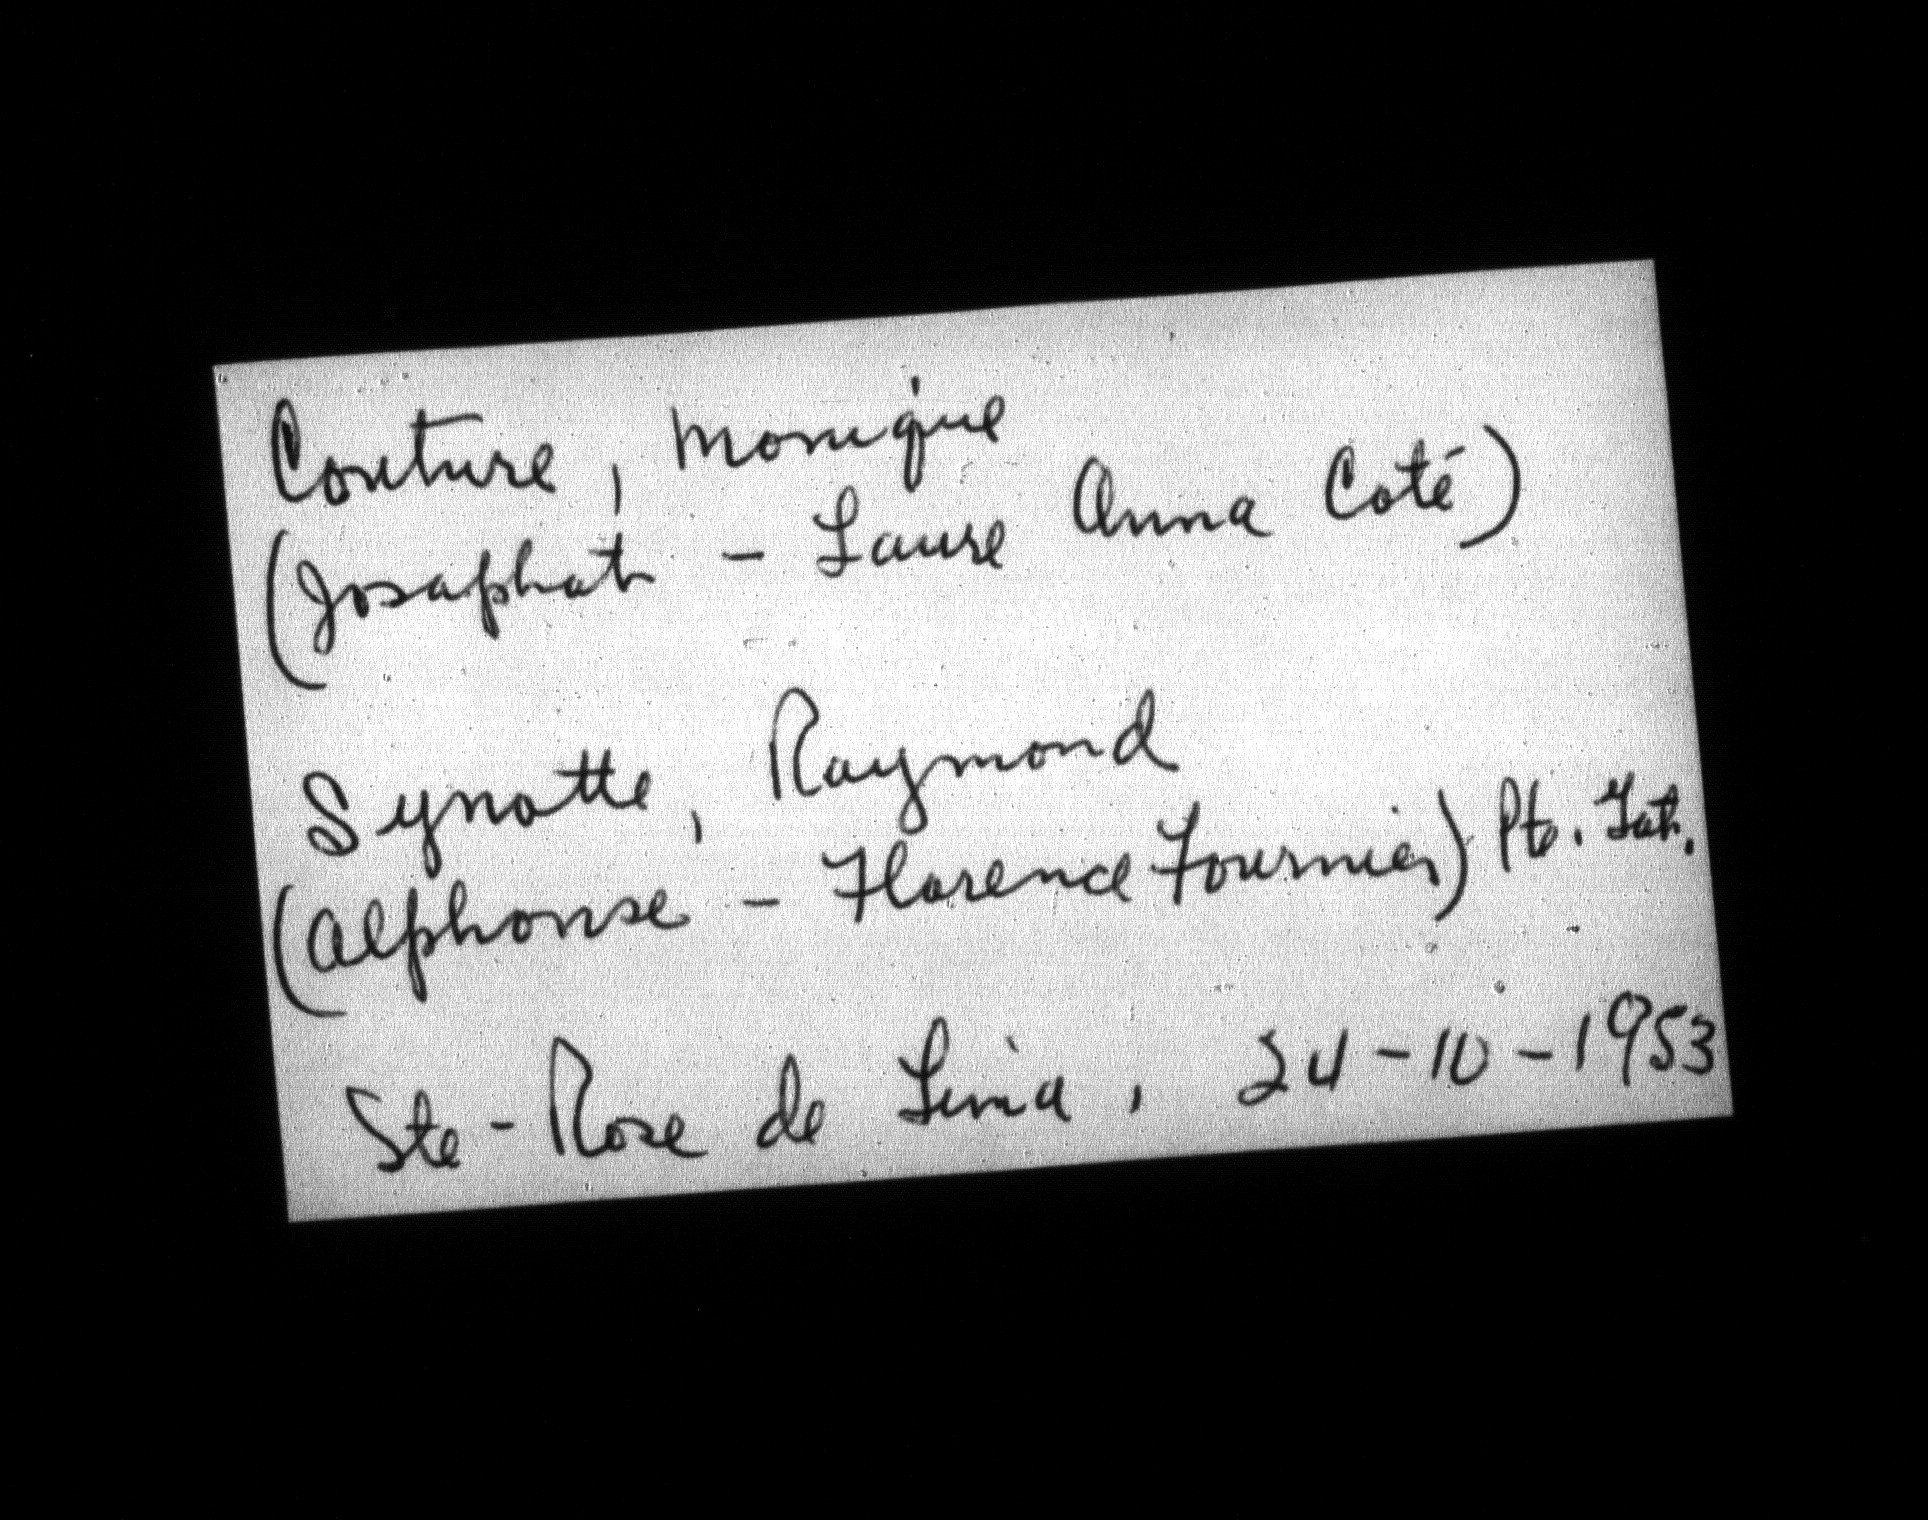 Couture, Monique
(Josaphat - Laure Anna Coté)
Synotte, Raymond
(Alphonse - Florence Fournier) Pte. Gat.
Ste-Rose de Lima, 24-10-1953